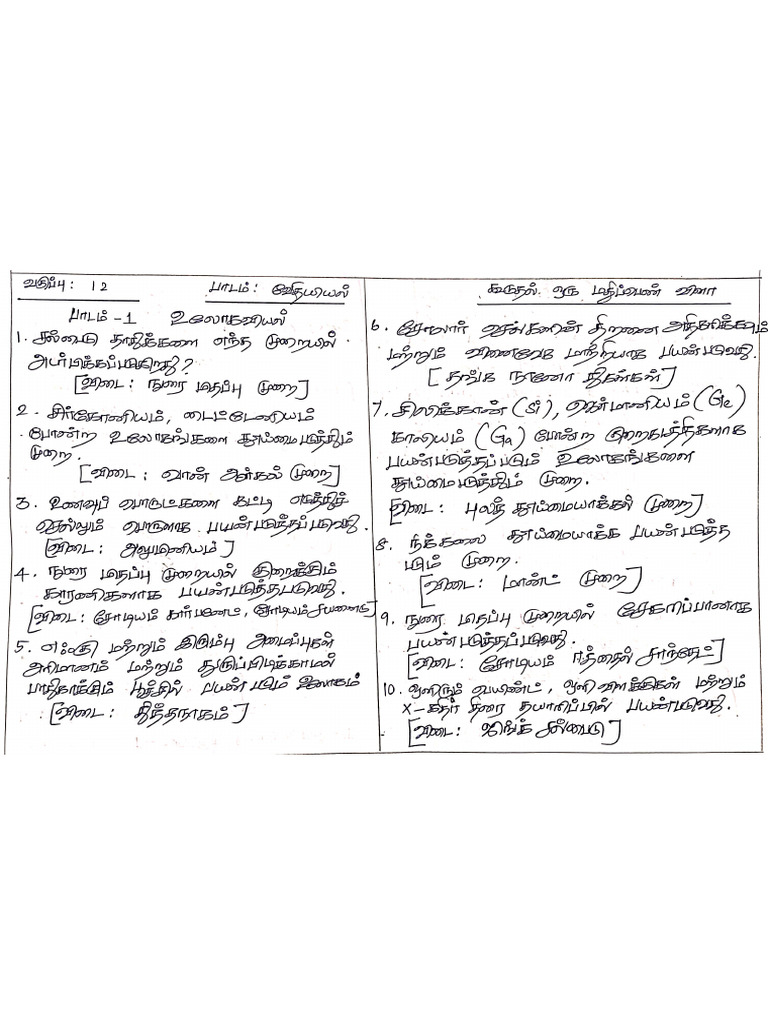 வகுப்பு : 12 பாடம் : வேதியியல்
பாடம் -1 உலோகவியல்
1. சல்பைடு தாதுக்களை எந்த முறையில்
அடர்பிக்கப்படுகிறது?
[விடை : நுரை மிதப்பு முறை]
2. சிர்கோனியம், டைட்டேனியம்
போன்ற உலோகங்களை தூய்மைபடுத்தும்
முறை.
[விடை : வான் அர்கல் முறை]
3. உணவுப் பொருட்களை கட்டி எடுத்துச்
செல்லும் பொருளாக பயன்படுத்தப்படுவது.
[விடை : அலுமினியம்]
4. நுரை மிதப்பு முறையில் குறைக்கும்
காரணிகளாக பயன்படுத்தபடுவது.
[விடை : சோடியம் கார்பனேட், சோடியம் சயனைடு]
5. எஃகு மற்றும் இரும்பு அமைப்புகள்
அரிமானம் மற்றும் துருப்பிடிக்காமல்
பாதுகாக்கும் பயன்படும் உலோகம்
[விடை : துத்தநாகம்]
கூடுதல் ஒரு மதிப்பெண் வினா
6. சோலார் செல்களின் திறனை அதிகரிக்கவும்
மற்றும் வினைவேக மாற்றியாக பயன்படுவது.
[தங்க நானோ துகள்கள்]
7. சிலிக்கான் (Si), ஜெர்மானியம் (Ge)
காலியம் (Ga) போன்ற குறைகடத்திகளாக
பயன்படுத்தப்படும் உலோகங்களை
தூய்மைபடுத்தும் முறை.
[விடை : புலத் தூய்மையாக்கல் முறை]
8. நிக்கலை தூய்மையாக்க பயன்படுத்த
படும் முறை.
[விடை : மாண்ட் முறை]
9. நுரை மிதப்பு முறையில் சேகரிப்பானாக
பயன்படுத்தப்படுவது.
[விடை : சோடியம் ஈத்தைல் சாந்தேட்]
10. ஒளிரும் பெயிண்ட், ஒளி விளக்குகள் மற்றும்
X-கதிர் திரை தயாரிப்பில் பயன்படுவது.
[விடை : ஜிங்க் சல்பைடு]